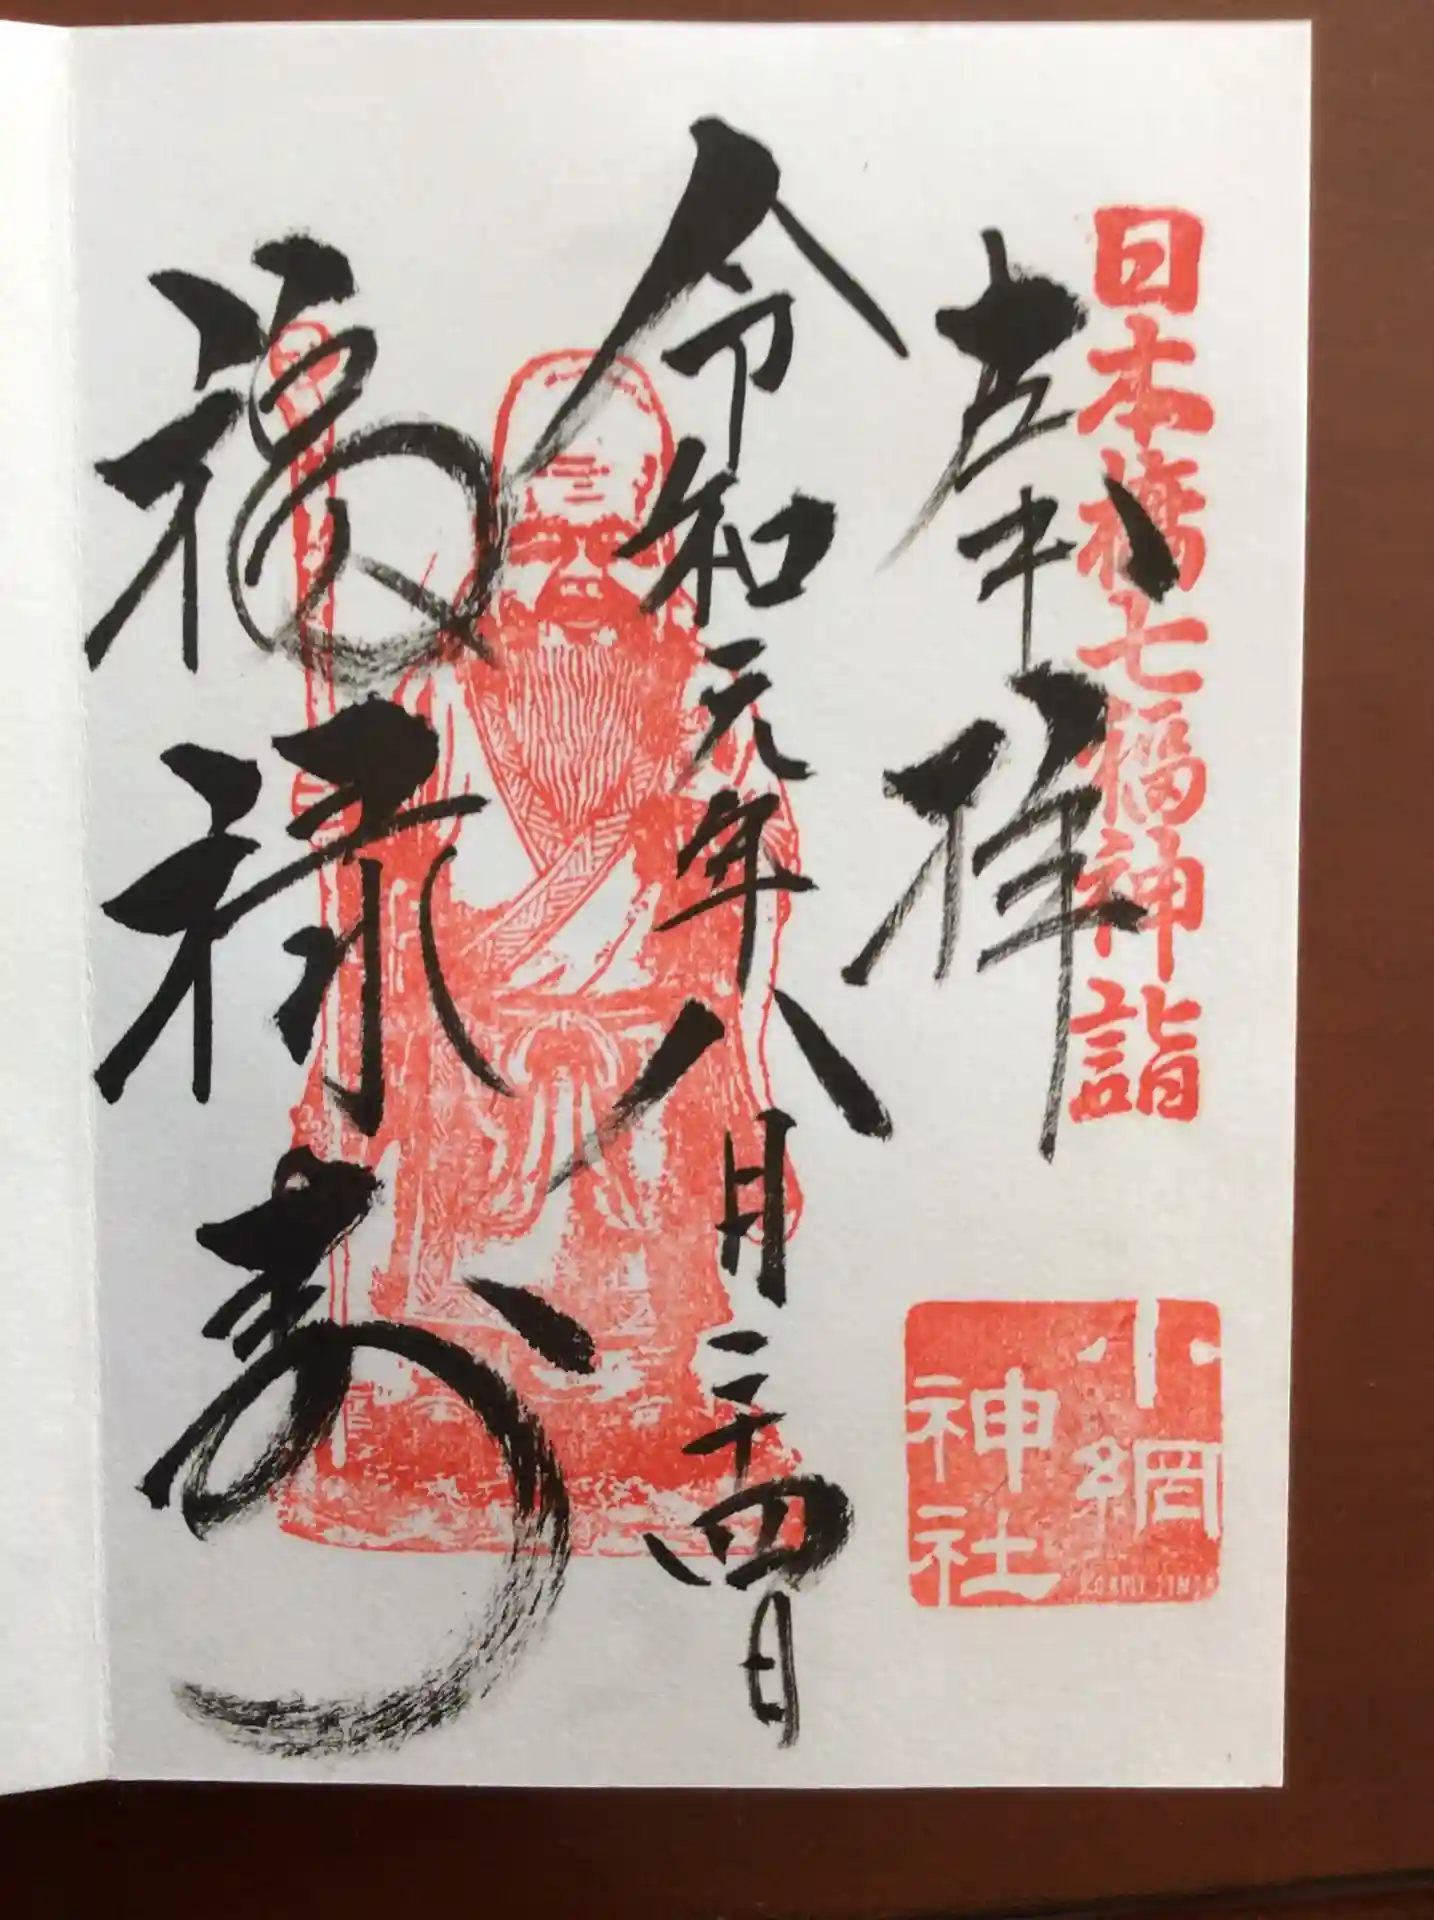 日本橋七福神詣
奉拝
小網
神社
令和元年八月二十四日
福禄寿